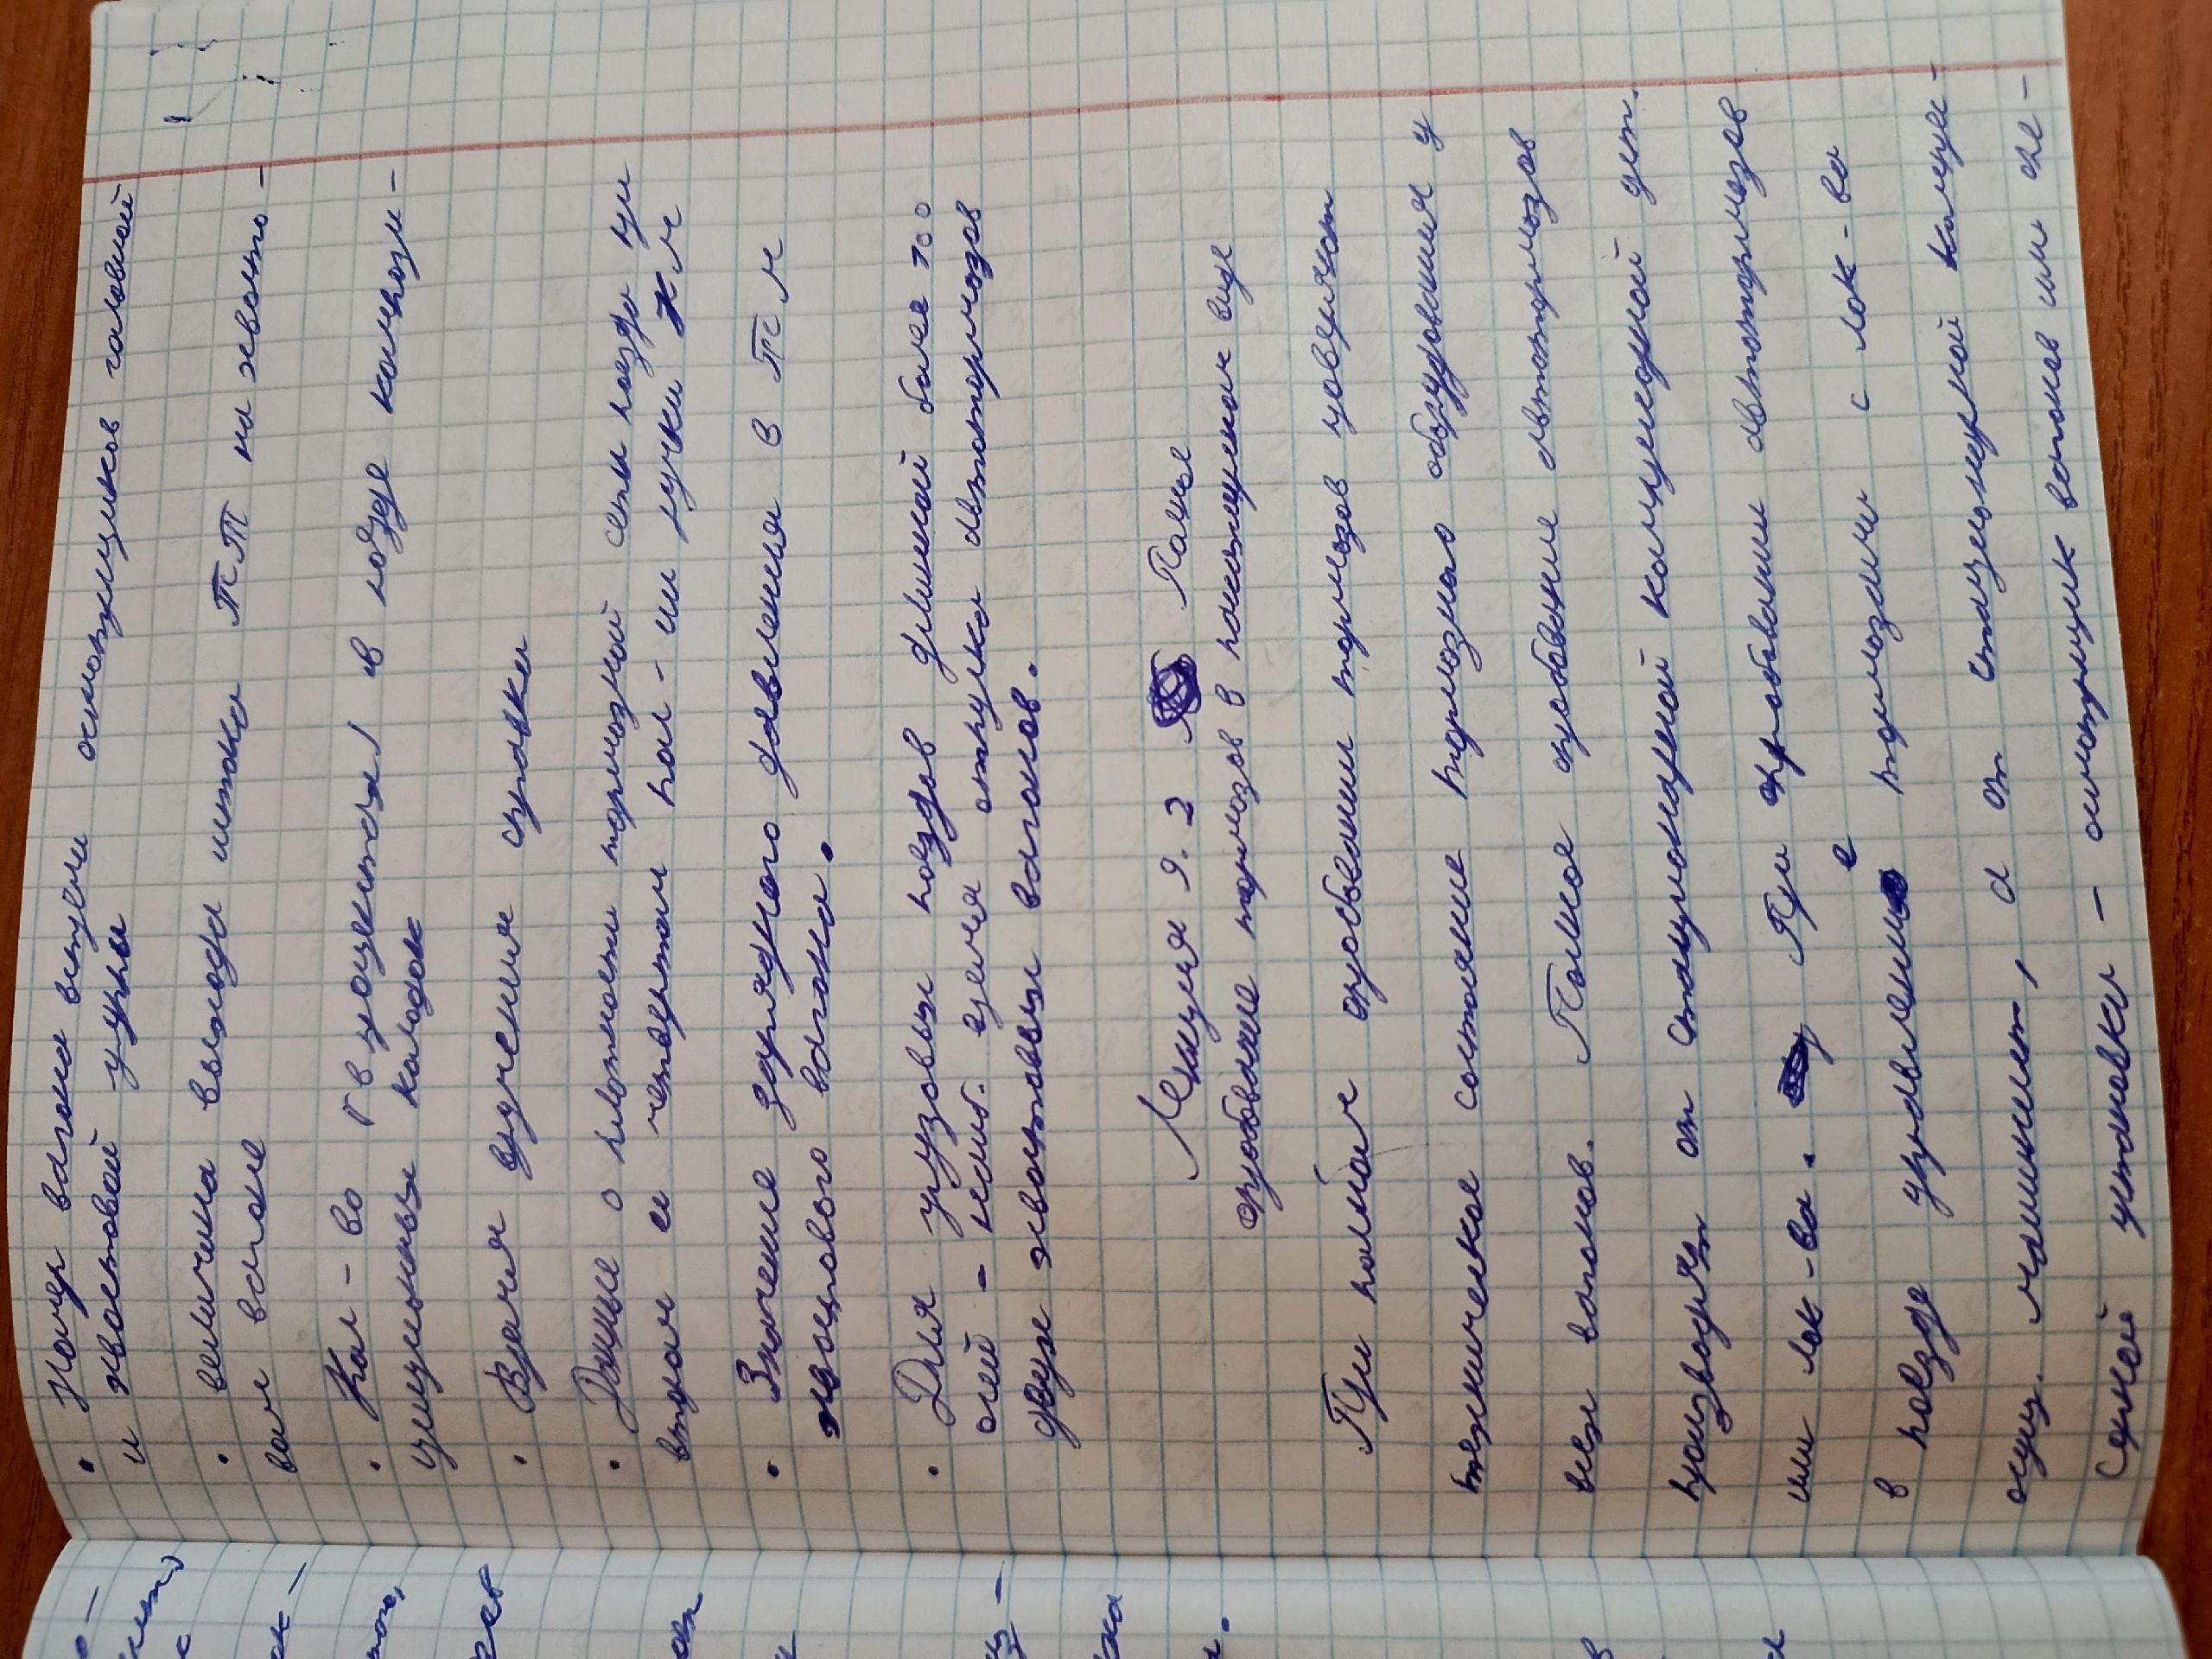 • Номер вагона встречи осмотрщиков головной
и хвостовой группы
• величина выхода штока ТЦ на хвосто-
вом вагоне
• Кол-во (в процентах) в поезде компози-
ционных колодок
• Время вручения справки
• Данные о плотности тормозной сети поезда при
втором и четвертом пол-ии ручки К.М
• Значение зарядного давления в ТМ
хвостового вагона.
• Для грузовых поездов длинной более 300
осей - наиб. время отпуска автотормозов
двух хвостовых вагонов.
Лекция 9.2 Полное
опробование тормозов в пассажирском виде
При полном опробовании тормозов проверяют
техническое состояние тормозного оборудования у
всех вагонов. Полное опробование автотормозов
производят от стационарной компрессорной уст.
или лок-ва. При опробовании автотормозов
в поезде управление тормозами с лок-ва
осущ. машинист, а от стационарной компрес-
сорной установки - осмотрщик вагонов или опе-